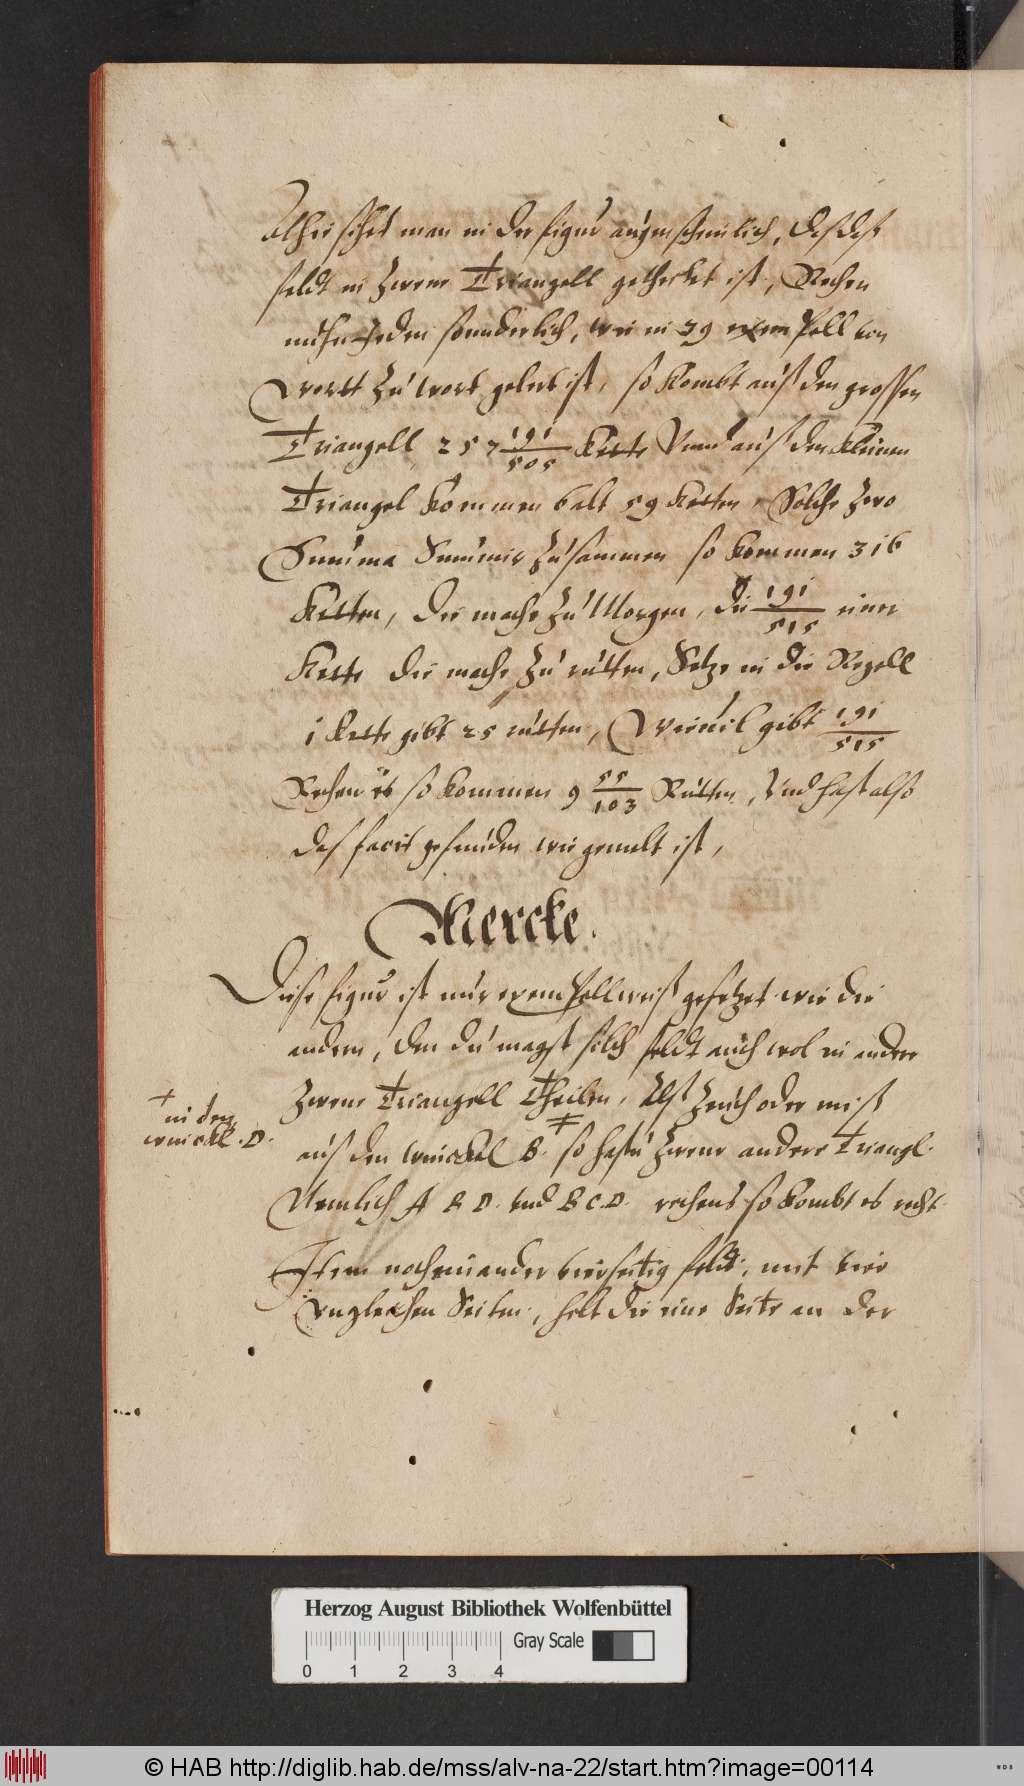 Alhie sihet man in der figur augenscheinlich, das das
feldt in zwene Triangell getheilet ist, Rechen
nuhn jeden sonnderlich, wie in 39 exempell von
wortt zu wort gelert ist, so kombt aus dem grossen
Triangell 257 191/505 kette Vnnd aus dem kleinen
Triangel kommen balt 59 ketten, Solche zwo
Summa Summir zusammen so kommen 316
ketten, die mache zu Morgen, die 191/515 einer
kette die mache zu rutten, Setze in die Regell
1 kette gibt 25 rutten, Wieuil gibt 191/515
Rechen es so kommen 9 55/103 Rutten, Vnd hast also
das facit gefunden wie gemelt ist,
Mercke.
Diese figur ist nur exempellweis gesetzet wie die
andern, den du magst solch feldt auch wol in andere
zwene Triangell Theilen, Als zeuch oder mis
+ in den
winckl. D.
aus dem winckel B. + so hastu zwene andere Triangl.
Nemlich A B D. vnd B C. D. rechens so kombt es recht
Item noch ein ander vierseitig feldt, mit vier
vngleichen Seiten, helt die eine Seite an der
Herzog August Bibliothek Wolfenbüttel
Gray Scale
0 1 2 3 4
© HAB http://diglib.hab.de/mss/alv-na-22/start.htm?image=00114